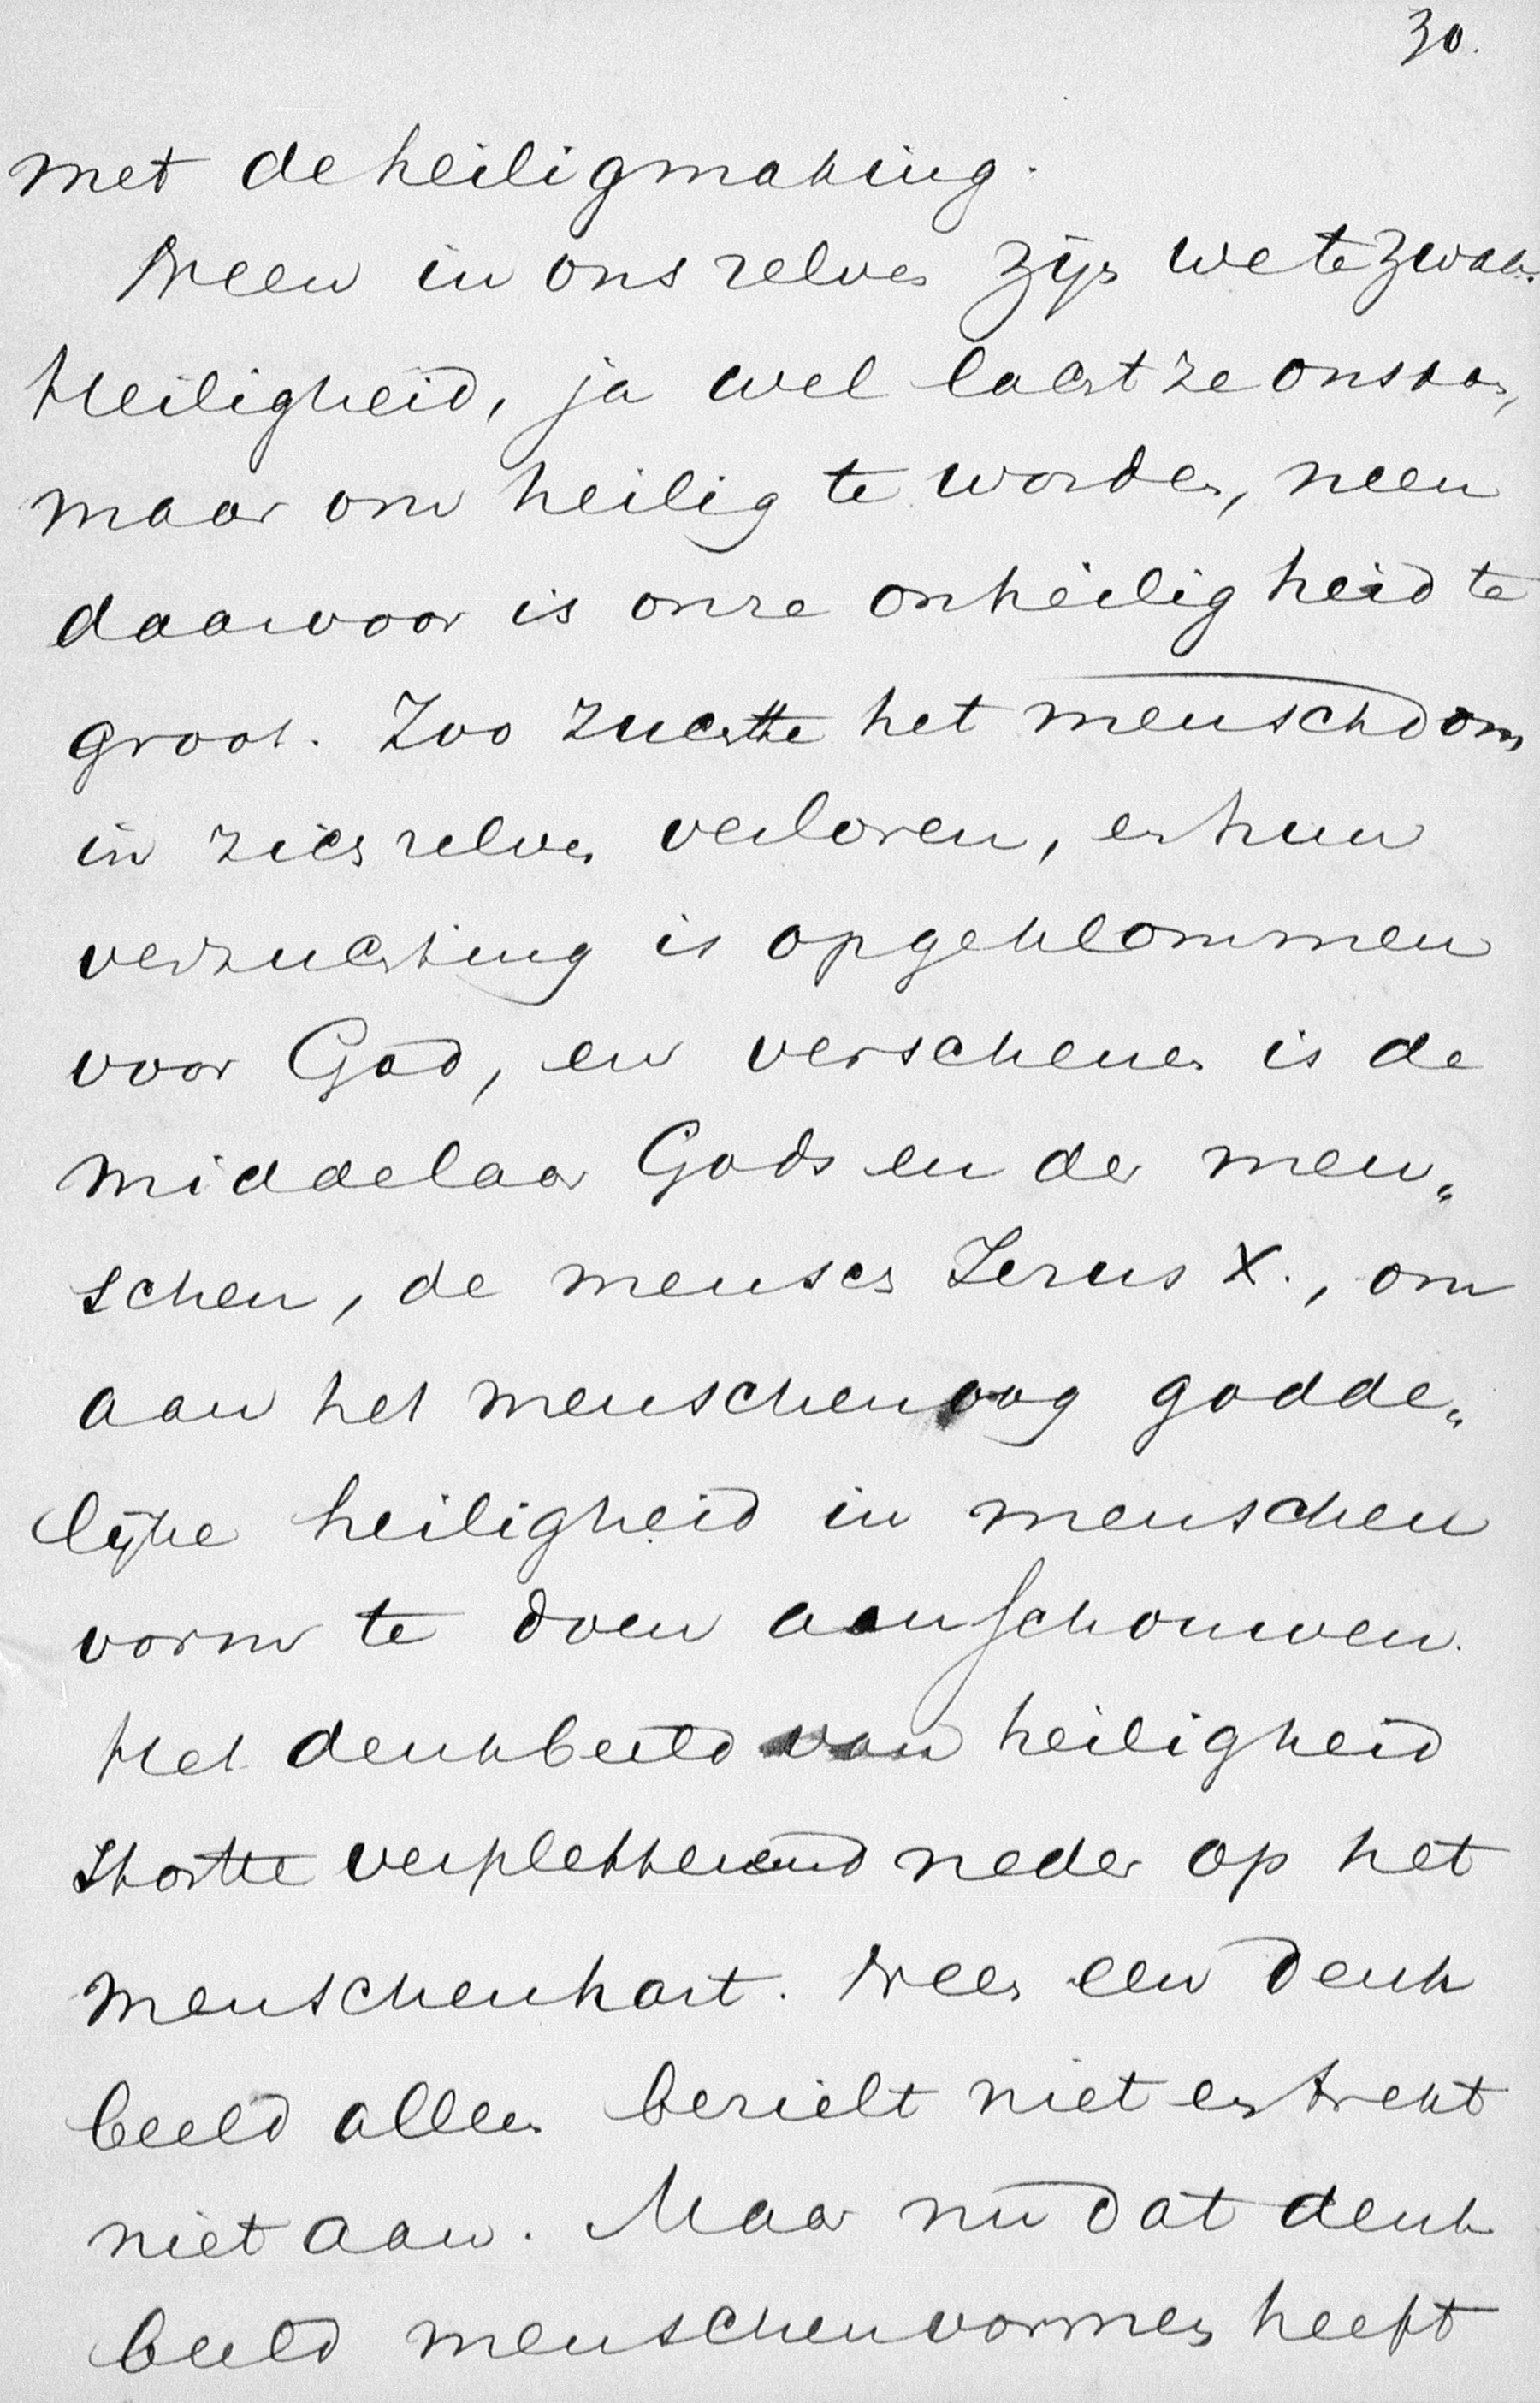 30.
met de heiligmaking.
Neen in ons zelven zijn we te zwak.
Heiligheid, ja wel lacht ze ons aan,
maar om heilig te worden, neen
daarvoor is onze onheiligheid te
groot. Zoo zuchtte het menschdom
in zich zelven verloren, en hun
verzuchting is opgeklommen
voor God, en verschenen is de
middelaar Gods en der men„
schen, de mensch Jezus X., om
aan het menschenoog godde„
lijke heiligheid in menschen
vorm te doen aanschouwen.
Het denkbeeld van heiligheid
stortte verpletterend neder op het
menschenhart. Neen een denk
beeld alleen bezielt niet en trekt
niet aan. Maar nu dat denk
beeld menschenvormen heeft